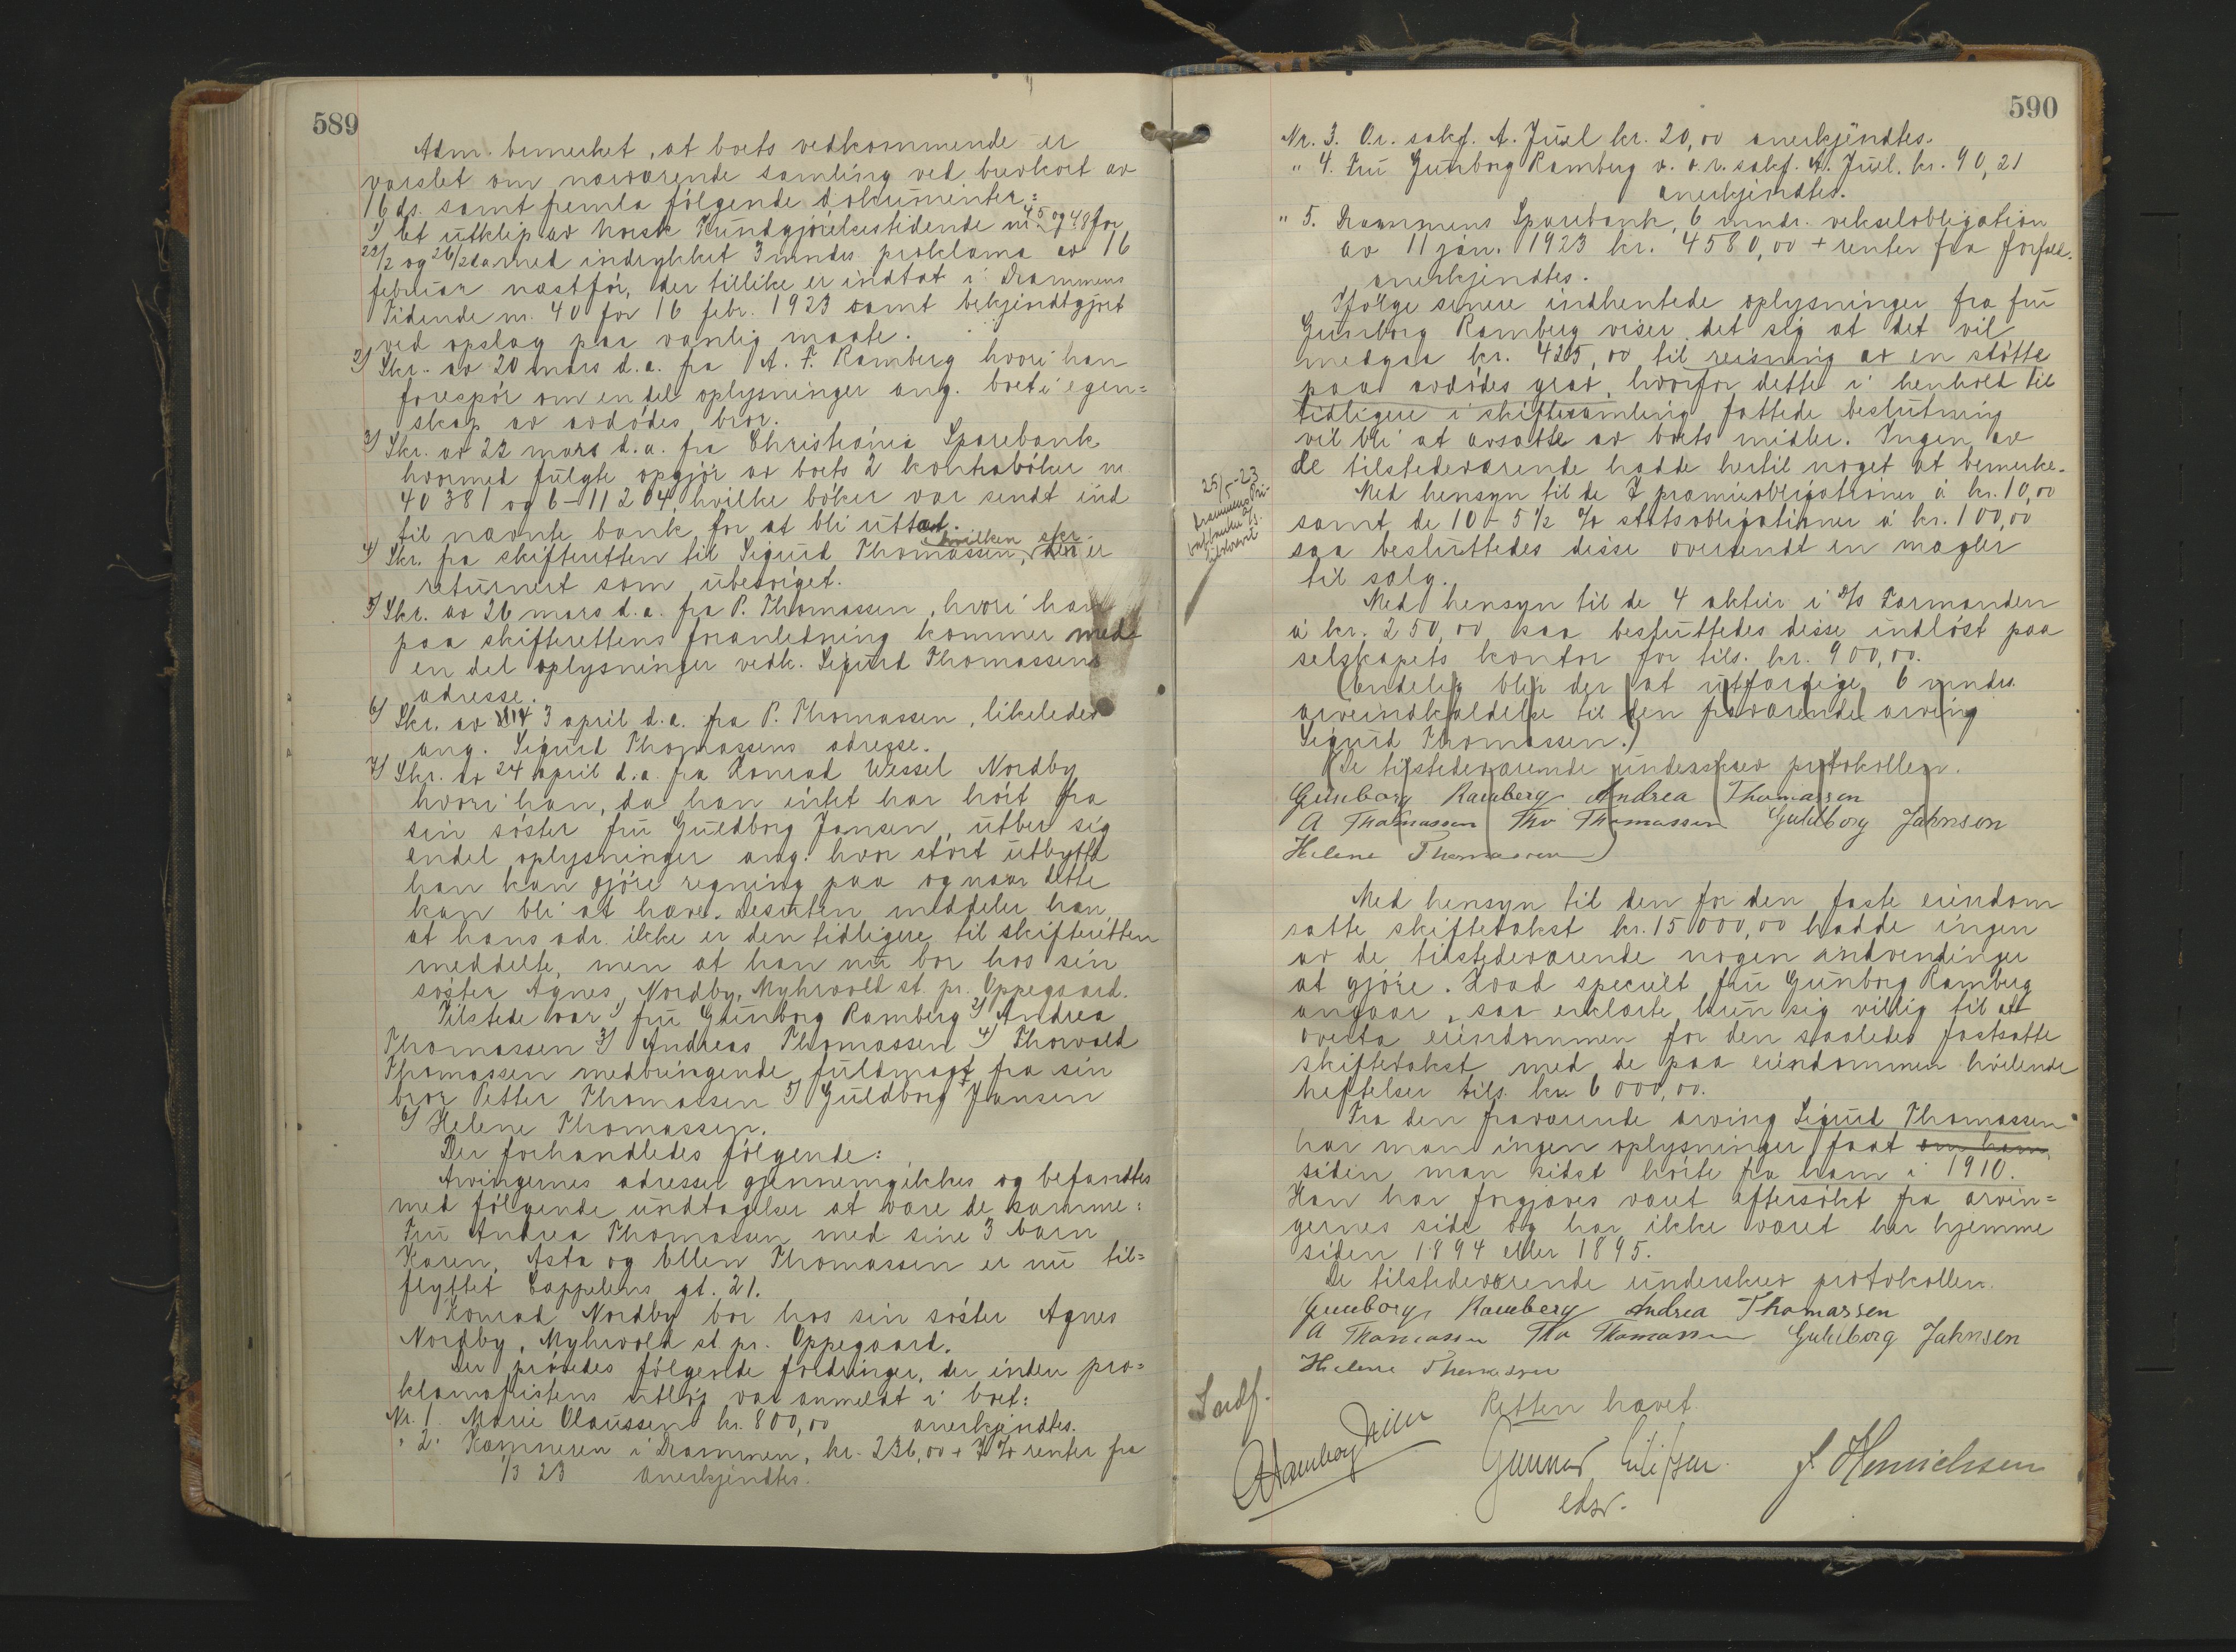 589
Adm. bemerket, at boets vedkommende er
varslet om nærværende samling ved brevkort av
16 ds. samt fremla følgende dokumenter:
1) Et utklip av Norsk Kundgjørelsestidende nr. 45 og 48 for
22/2 og 26/2 da med indrykket 3 mndrs. proklama av 16
februar næstfør, der tillike er indtat i Drammens
Tidende nr. 40 for 16 febr. 1923 samt bekjendtgjort
ved opslag paa vanlig maate.
2) Skr. av 20 mars d.a. fra A. F. Ramberg hvori han
forespør om en del oplysninger ang. boet i egen=
skap av avdødes bror.
3) Skr. av 22 mars d.a. fra Christiania Sparebank
hvormed fulgte opgjør av boets 2 kontrabøker nr.
40381 og 6-11204, hvilke bøker var sendt ind
til nævnte bank for at bli uttat.
4) Skr. fra skifteretten til Sigurd Thomassen, hvilken skr. den er
returnert som ubesørget.
5) Skr. av 26 mars d.a. fra P. Thomassen, hvori han
paa skifterettens foranledning kommer med
en del oplysninger vedk. Sigurd Thomassens
adresse.
6) Skr. av 3 april d.a. fra P. Thomassen, likeledes
ang. Sigurd Thomassens adresse.
7) Skr. av 24 april d.a. fra Konrad Wessel Nordby
hvori han, da han intet har hørt fra
sin søster fru Guldborg Jansen, utber sig
endel oplysninger ang. hvor stort utbytte
han kan gjøre regning paa og naar dette
kan bli at hæve. Desuten meddeler han,
at hans adr. ikke er den tidligere til skifteretten
meddelte, men at han nu bor hos sin
søster Agnes Nordby, Myhrvold st. pr. Oppegaard.
Tilstede var 1) fru Gunborg Ramberg 2) Andrea
Thomassen 3) Andreas Thomassen 4) Thorvald
Thomassen medbringende fuldmagt fra sin
bror Petter Thomassen 5) Guldborg Jansen
6) Helene Thomassen.
Der forhandledes følgende:
Arvingernes adresser gjennemgikkes og befandtes
med følgende undtagelser at være de samme:
Fru Andrea Thomassen med sine 3 barn
Karen, Asta og Ellen Thomassen er nu til=
flyttet Cappelens gt. 21.
Konrad Nordby bor hos sin søster Agnes
Nordby, Myhrvold st. pr. Oppegaard.
Der prøvedes følgende fordringer, der inden pro=
klamafristens utløp var anmeldt i boet:
Nr. 1. Marie Olaussen kr. 800,00 anerkjendtes.
" 2. Kæmneren i Drammen, kr. 236,00 + 7% renter fra
1/3 23 anerkjendtes.
590
Nr. 3. O.r. sakf. A. Juel kr. 20,00 anerkjendtes.
" 4. Fru Gunborg Ramberg v. o.r. sakf. A. Juel. kr. 90,21
anerkjendtes.
" 5. Drammens Sparebank, 6 mndr. vekselobligation
av 11 jan. 1923 kr. 4580,00 + renter fra forfald.
anerkjendtes.
Ifølge senere indhentede oplysninger fra fru
Gunborg Ramberg viser det sig at det vil
medgaa kr. 425,00 til reisning av en støtte
paa avdødes grav, hvorfor dette i henhold til
tidligere i skiftesamling fattede beslutning
vil bli at avsætte av boets midler. Ingen av
de tilstedeværende hadde hertil noget at bemerke.
Med hensyn til de 7 præmieobligationer à kr. 10,00
samt de 10 - 5 1/2 % statsobligationer à kr. 100,00
saa besluttedes disse oversendt en mægler
til salg.
25/5-23
Med hensyn til de 4 aktier i A/S Formanden
à kr. 250,00 saa besluttedes disse indløst paa
selskapets kontor for tils. kr. 900,00.
(Endelig blir der at utfærdige 6 mndrs.
arveindkaldelse til den fraværende arving
Sigurd Thomassen.)
De tilstedeværende underskrev protokollen.
Gunborg Ramberg Andrea Thomassen
A Thomassen Tho Thomassen Guldborg Jahnsen
Helene Thomassen
Med hensyn til den for den faste eiendom
satte skiftetakst kr. 15000,00 hadde ingen
av de tilstedeværende nogen indvendinger
at gjøre. Hvad specielt fru Gunborg Ramberg
angaar, saa erklærte hun sig villig til at
overta eiendommen for den saaledes fastsatte
skiftetakst med de paa eiendommen hvilende
heftelser tils. kr. 6000,00.
Fra den fraværende arving Sigurd Thomassen
har man ingen oplysninger faat om ham
siden man sidst hørte fra ham i 1910.
Han har forgjæves været eftersøkt fra arvin=
gernes side og har ikke været her hjemme
siden 1894 eller 1895.
De tilstedeværende underskrev protokollen.
Gunborg Ramberg Andrea Thomassen
A Thomassen Tho Thomassen Guldborg Jahnsen
Helene Thomassen
Retten hævet.
Gunnar
edsv.
J. Henrichsen